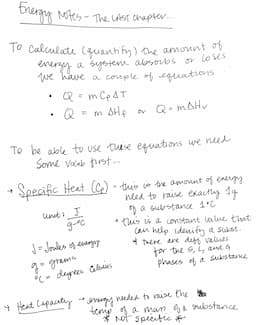 Energy Notes - The last chapter...
To calculate (quantify) the amount of
energy a system absorbs or loses
we have a couple of equations
• Q = m Cp ΔT
• Q = m ΔHf or Q = m ΔHv
To be able to use these equations we need
some vocab first...
→ Specific Heat (Cp) - this is the amount of energy
need to raise exactly 1g
of a substance 1°C
unit: J
g-°C
• this is a constant value that
can help identify a subst.
+ there are diff values
for the s, l, and g
phases of a substance
J = Joules of energy
g = grams
°C = degrees Celsius
→ Heat Capacity → energy needed to raise the
temp of a mass of a substance
* Not specific *